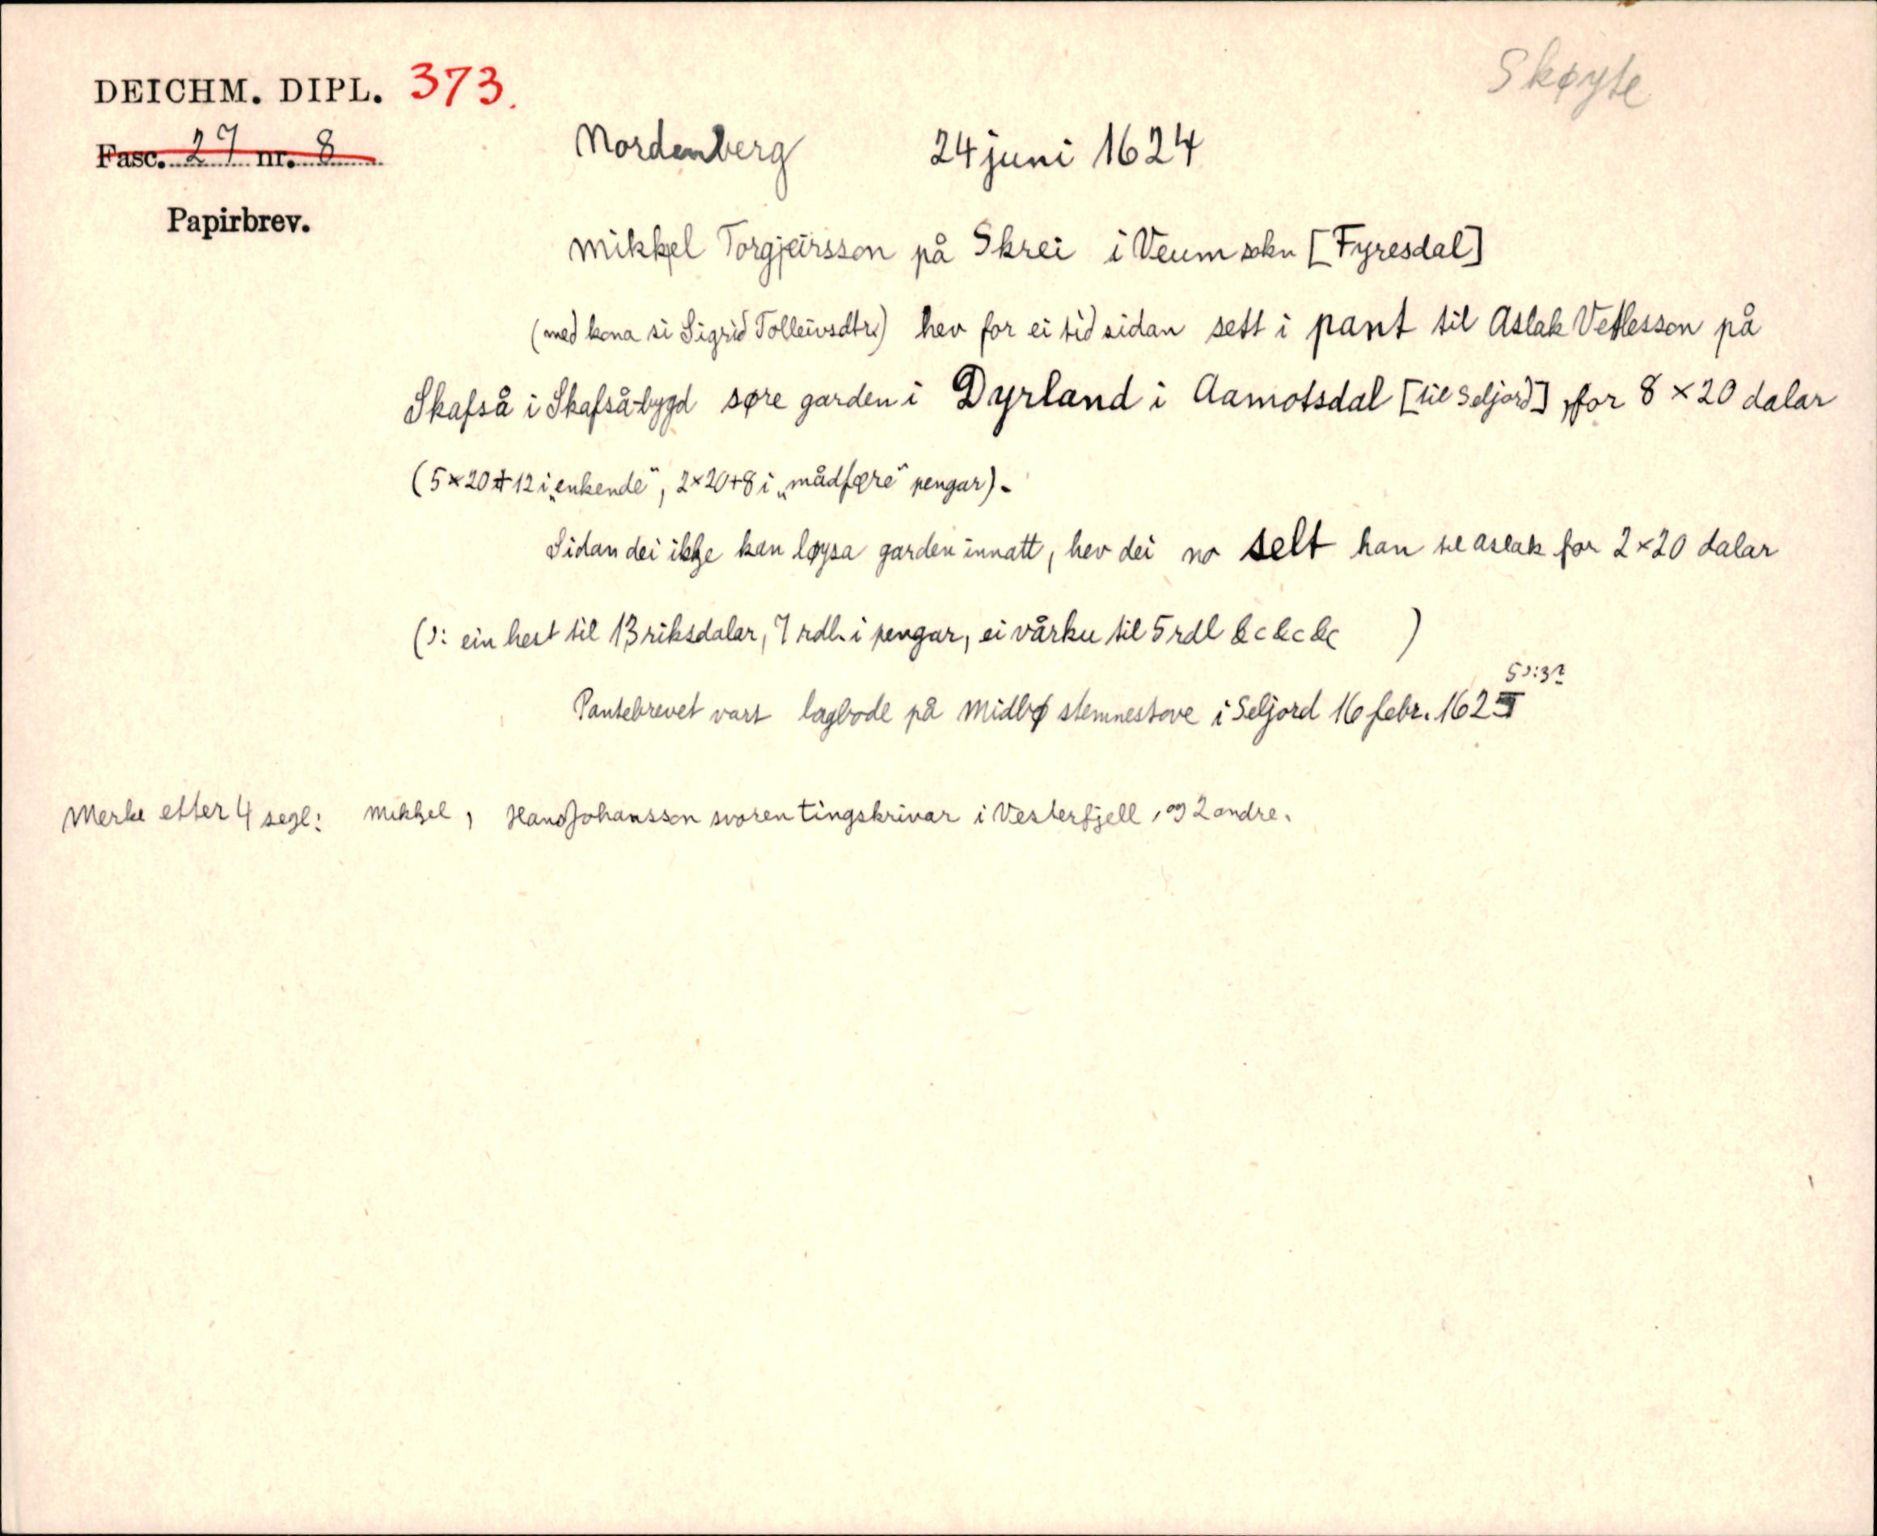 Skøyte
DEICHM. DIPL. 373.
Fasc. 27 nr. 8
Papirbrev.
Nordenberg 24 juni 1624
Mikkjel Torgjeirsson på Skrei i Veum sokn [Fyresdal]
(med kona si Sigrid Tolleivsdtr.) hev for ei tid sidan sett i pant til Aslak Vetlesson på
Skafså i Skafså-bygd søre garden i Dyrland i Aamotsdal [til Seljord], for 8 × 20 dalar
(5 × 20 + 12 i „enkende", 2 × 20 + 8 i „mådfære" pengar).
Sidan dei ikkje kan løysa garden innatt, hev dei no selt han til Aslak for 2 × 20 dalar
(ɔ: ein hest til 13 riksdalar, 7 rdl. i pengar, ei vårku til 5 rdl &c &c &c )
5 ɔ: 3?
Pantebrevet vart lagbode på Midbø stemnestove i Seljord 16 febr. 162
Merke etter 4 segl: Mikkjel, Hans Johansson svoren tingskrivar i Vesterfjell, og 2 andre.